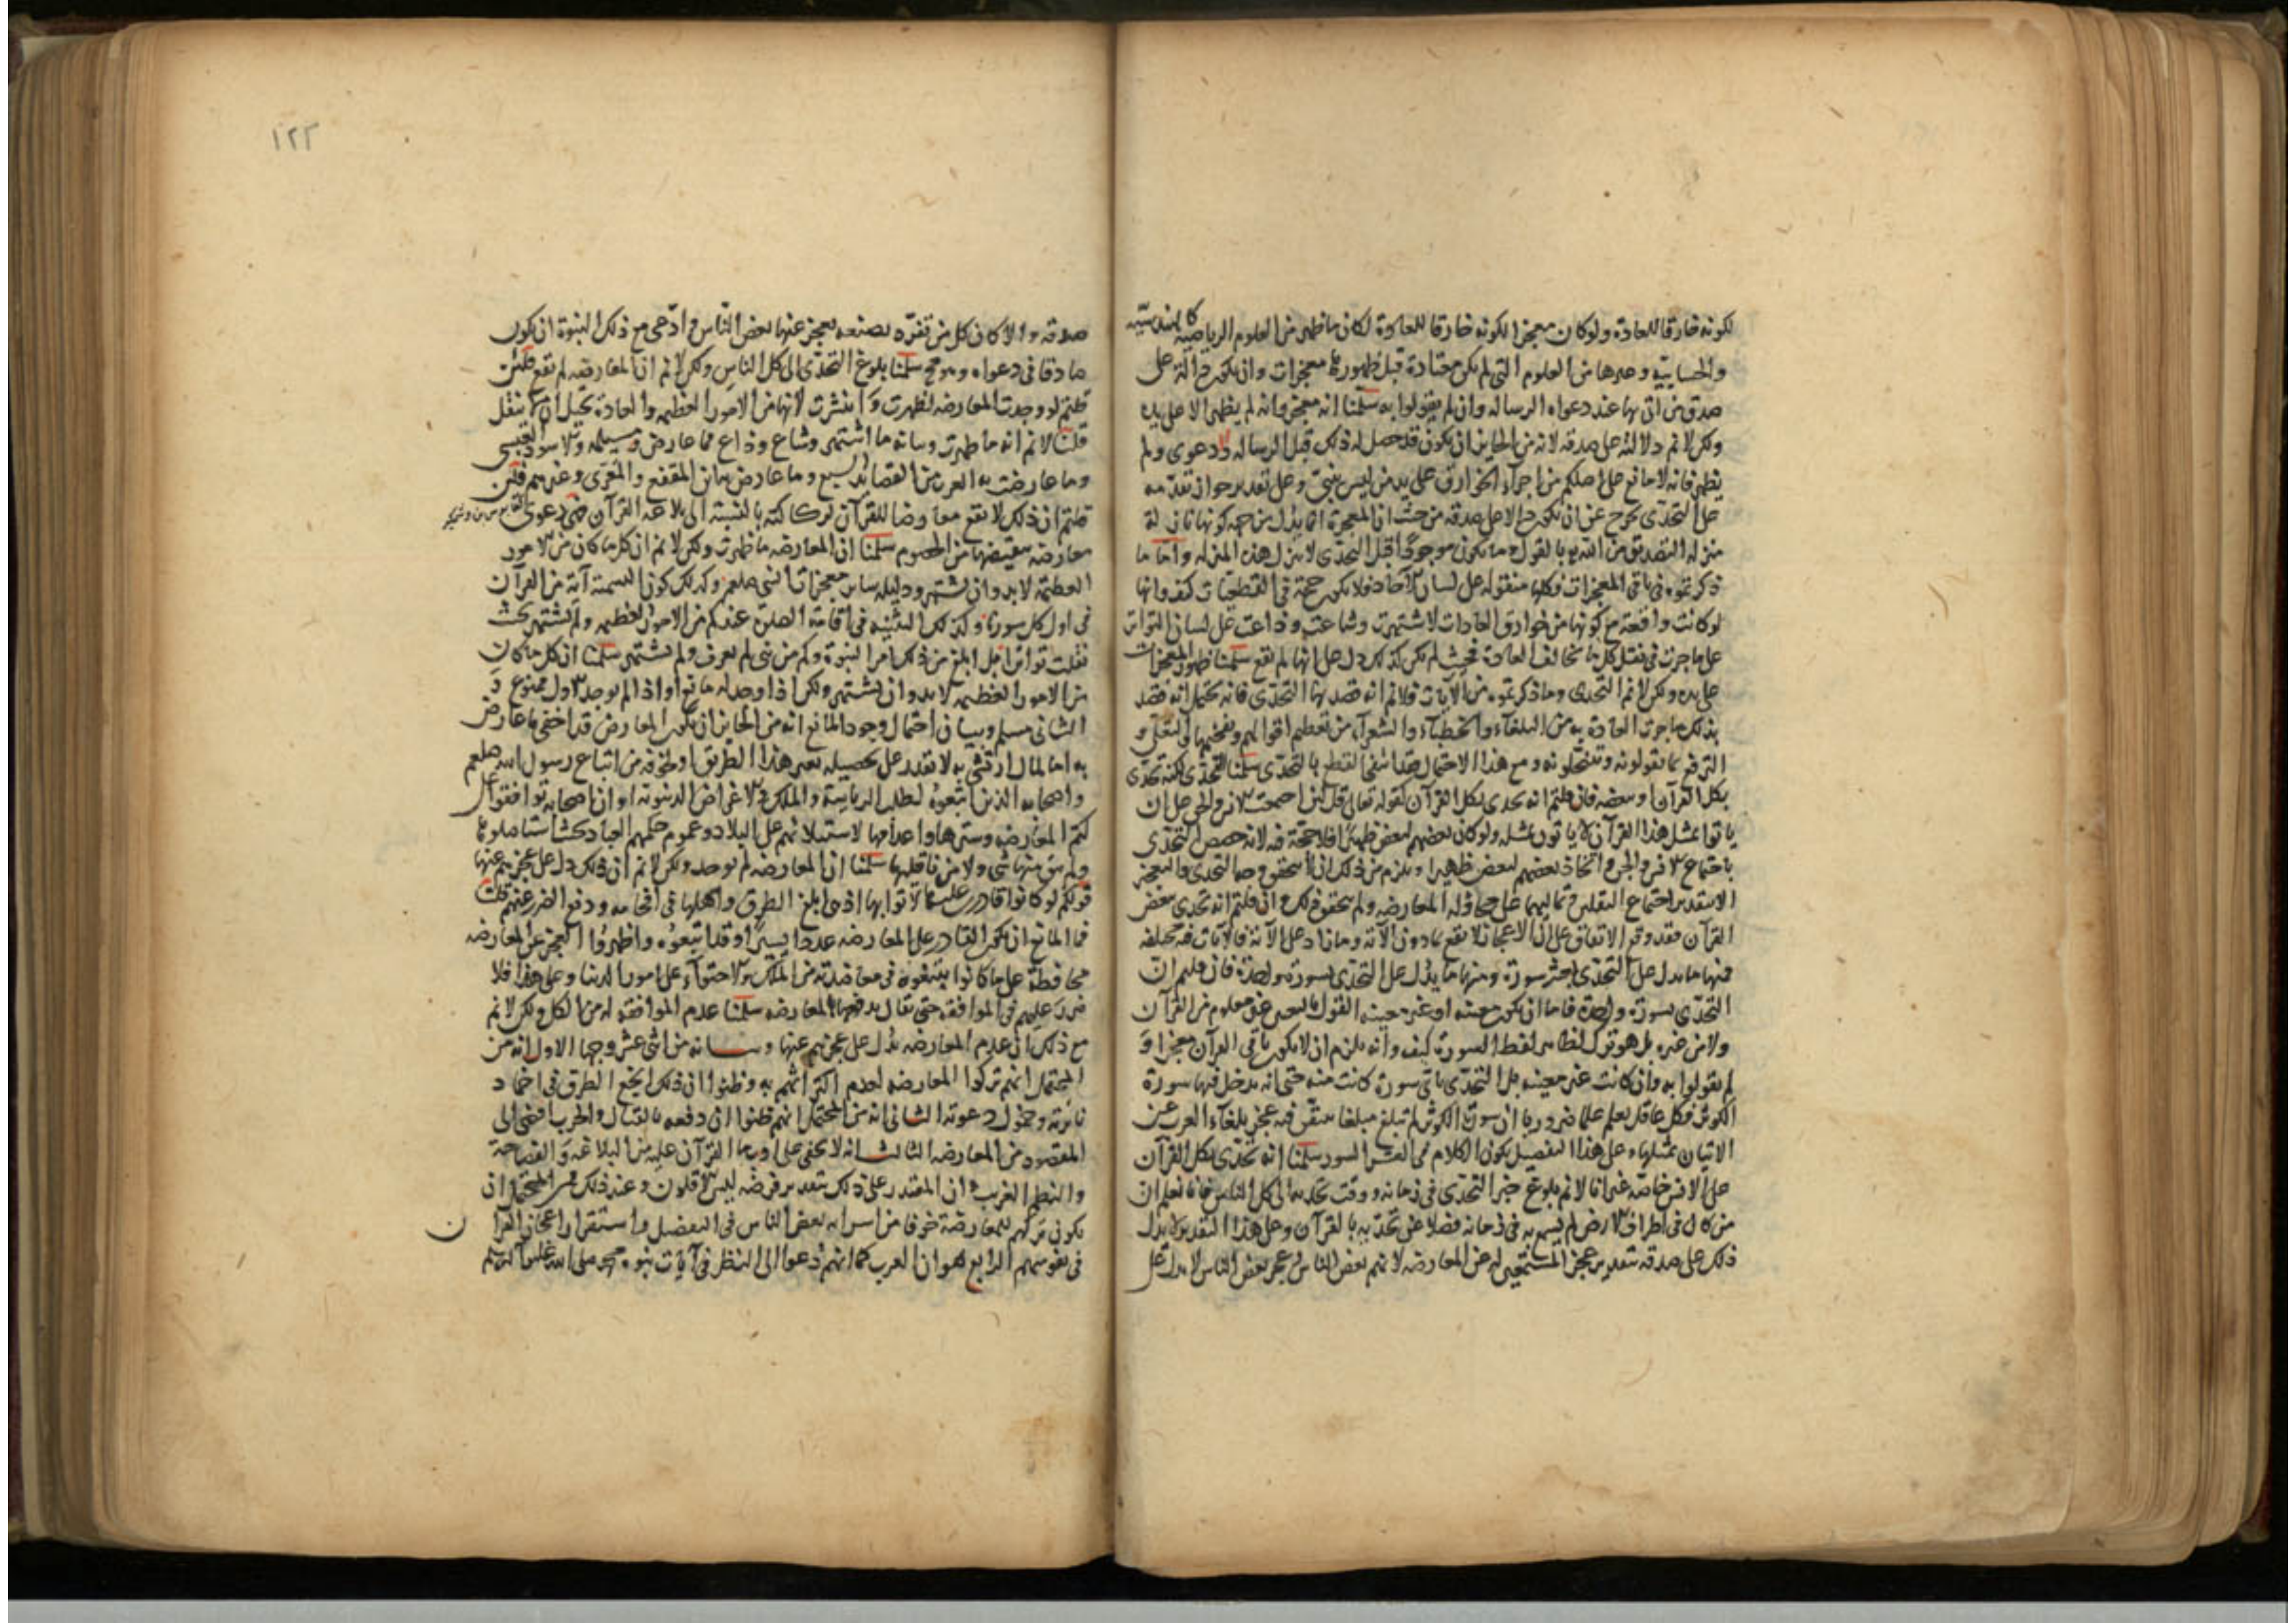 لكونه خارقا للعادة ولو كان معجزا لكونه خارقا للعادة لكان ما ظهر من العلوم الرياضية كالهندسية
والحسابية وغيرها من العلوم التي لم يكن معتادة قبل ظهورها معجزات وان يكون دالة على
صدق من اتى بها عند دعواه الرسالة وان لم يقولوا به سلمنا انه معجز وانه لم يظهر الا على يده
ولكن لا نم دلالته على صدقه لانه من الجايز ان يكون قد حصل له ذلك قبل الرسالة ودعوى ولم
يظهر فانه لا مانع على اصلكم من اجراء الخوارق على يد من ليس بنبي وعلى تقدير جواز تقدمه
على التحدي يخرج عن ان يكون دالا على صدقه من حيث ان المعجزة انما يدل من جهة كونها نازلة
منزلة التصديق من الله له بالقول وما يكون موجودا قبل التحدي لا ينزل هذه المنزلة واما ما
ذكرتموه في باقي المعجزات فكلها منقولة على لسان الآحاد فلا يكون حجة في القطعيات كيف وانها
لو كانت واقعة مع كونها من خوارق العادات لاشتهرت وشاعت وذاعت على لسان التواتر
على ما جرت في نقل كل ما يخالف العادة فحيث لم يكن كذلك دل على انها لم تقع سلمنا ظهور المعجزات
على يده ولكن لا نم التحدي وما ذكرتموه من الآيات فلا نم انه قصد بها التحدي فانه يحتمل انه قصد
بذلك ما جرت العادة به من البلغاء والخطباء والشعراء من تعظيم اقوالهم وتفخيمها و
الترفع بما يقولونه وينتحلونه ومع هذا الاحتمال فقد انتفى القطع بالتحدي سلمنا التحدي لكنه تحدى
بكل القرآن او ببعضه فان قلتم انه تحدى بكل القرآن لقوله تعالى قل لئن اجتمعت الانس والجن على ان
ياتوا بمثل هذا القرآن لا ياتون بمثله ولو كان بعضهم لبعض ظهيرا فلا حجة فيه لانه خصص التحدي
باجتماع الانس والجن واتخاذ بعضهم لبعض ظهيرا ويلزم من ذلك ان لا يتحقق وجه التحدي والتعجيز
الا بتقدير اجتماع الثقلين وتماليهما على محاولة المعارضة ولم يتحقق ذلك وان قلتم انه تحدى ببعض
القرآن فقد وقع الاتفاق على ان الاعجاز لا يقع بما دون الآية وما زاد على الآية فالآيات فيه مختلفة
فمنها ما يدل على التحدي بعشر سورة ومنها ما يدل على التحدي بسورة واحدة فان قلتم ان
التحدي بسورة واحدة فاما ان يكون معينة او غير معينة القول بالتعيين غير معلوم من القرآن
ولا من غيره بل هو ترك لظاهر لفظ السورة كيف وانه يلزم ان لا يكون باقي القرآن معجزا و
لم يقولوا به وان كانت غير معينة بل التحدي باي سورة كانت منه حتى انه يدخل فيها سورة
الكوثر فكل عاقل يعلم علما ضروريا ان سورة الكوثر لم تبلغ مبلغا يتقن فيه عجز بلغاء العرب عن
الاتيان بمثلها وعلى هذا التفصيل يكون الكلام في العشر السور سلمنا انه تحدى بكل القرآن
على الانس خاصة غير انا لا نم بلوغ خبر التحدي في زمانه ووقت تحديه الى كل الناس فانا نعلم ان
من كان في اطراف الارض لم يسمع به في زمانه فضلا عن تحديه بالقرآن وعلى هذا التقدير لا يدل
ذلك على صدقه بتقدير عجز المستمعين له عن المعارضة لانهم بعض الناس وعجز بعض الناس لا يدل على
١٢٢
صدقه والا كان كل من تفرد بصنعه يعجز عنها بعض الناس وادعى مع ذلك النبوة ان يكون
صادقا في دعواه وهو محال سلمنا بلوغ التحدي الى كل الناس ولكن لا نم ان المعارضة لم تقع فلئن
قلتم لو وجدت المعارضة لظهرت وانتشرت لانها من الامور العظيمة والعادة تحيل ان لا ينقل
قلنا لا نم انه ما ظهرت وبيانه ما اشتهر وشاع وذاع مما عارض مسيلمة والاسود العنسي
وما عارضت به العرب من القصايد السبع وما عارض به ابن المقفع والمعرى وغيرهم فلئن
قلتم ان ذلك لا يقع معارضا للقرآن لركاكته بالنسبة الى بلاغة القرآن فهي دعوى
معارضة بنقيضها من الخصوم سلمنا ان المعارضة ما ظهرت ولكن لا نم ان كل ما كان من الامور
العظيمة لا بد وان يشتهر ودليله ساير معجزات النبي صلعم وكذلك كون التسمية آية من القرآن
في اول كل سورة وكذلك التثنية في اقامة الصلوة عندكم من الامور العظيمة ولم يشتهر بحيث
نقلت تواترا بل ابلغ من ذلك امر النبوة وكم من نبي لم يعرف ولم يشتهر سلمنا ان كل ما كان
من الامور العظيمة لا بد وان يشتهر ولكن اذا وجد له مانع او اذا لم يوجد الاول ممنوع و
الثاني مسلم وبيان احتمال وجود المانع انه من الجايز ان يكون المعارض قد اخفى ما عارض
به اما لمال ارتشى به لا يقدر على تحصيله بغير هذا الطريق او لخوفه من اتباع رسول الله صلعم
واصحابه الذين اتبعوه لطلب الرياسة والملك والاغراض الدنيوية او ان اصحابه توافقوا على
كتم المعارضة وسترها واعدامها لاستيلائهم على البلاد وعموم حكمهم العباد بحيث استاصلوها
ولم يبق منها شي ولا من ناقلها سلمنا ان المعارضة لم توجد ولكن لا نم ان ذلك دل على عجزهم عنها
قولكم لو كانوا قادرين عليها لاتوا بها اذ هي ابلغ الطرق واكملها في افحامه ودفع الضرر عنهم قلنا
فما المانع ان يكون القادر على المعارضة عددا يسيرا وقد اتبعوه واظهروا العجز عن المعارضة
محافظة على ما كانوا يبتغوه في معاضدته من الملك والاحتواء على امور الدنيا وعلى هذا فلا
ضرر عليهم في الموافقة حتى يقال بدفعها بالمعارضة سلمنا عدم الموافقة له من الكل ولكن لا نم
مع ذلك ان عدم المعارضة يدل على عجزهم عنها وبيانه من اثنى عشر وجها الاول انه من
المحتمل انهم تركوا المعارضة لعدم اكتراثهم به وظنوا ان ذلك انجع الطرق في اخماد
نائرته وخمول دعوته الثاني انه من المحتمل انهم ظنوا ان دفعه بالقتال والحرب افضى الى
المقصود من المعارضة الثالث انه لا يخفى على اوربا القرآن عليه من البلاغة والفصاحة
والنظم الغريب وان المقتدر على ذلك بتقدير فرضه ليس الا قلون وعند ذلك فمن المحتمل ان
يكون تركهم للمعارضة خوفا من اسراء بعض الناس في التفضيل واستقرار اعجاز القرآن
في نفوسهم الرابع هو ان العرب كما انهم دعوا الى النظر في آيات نبوة محمد صلى الله عليه وآله وسلم